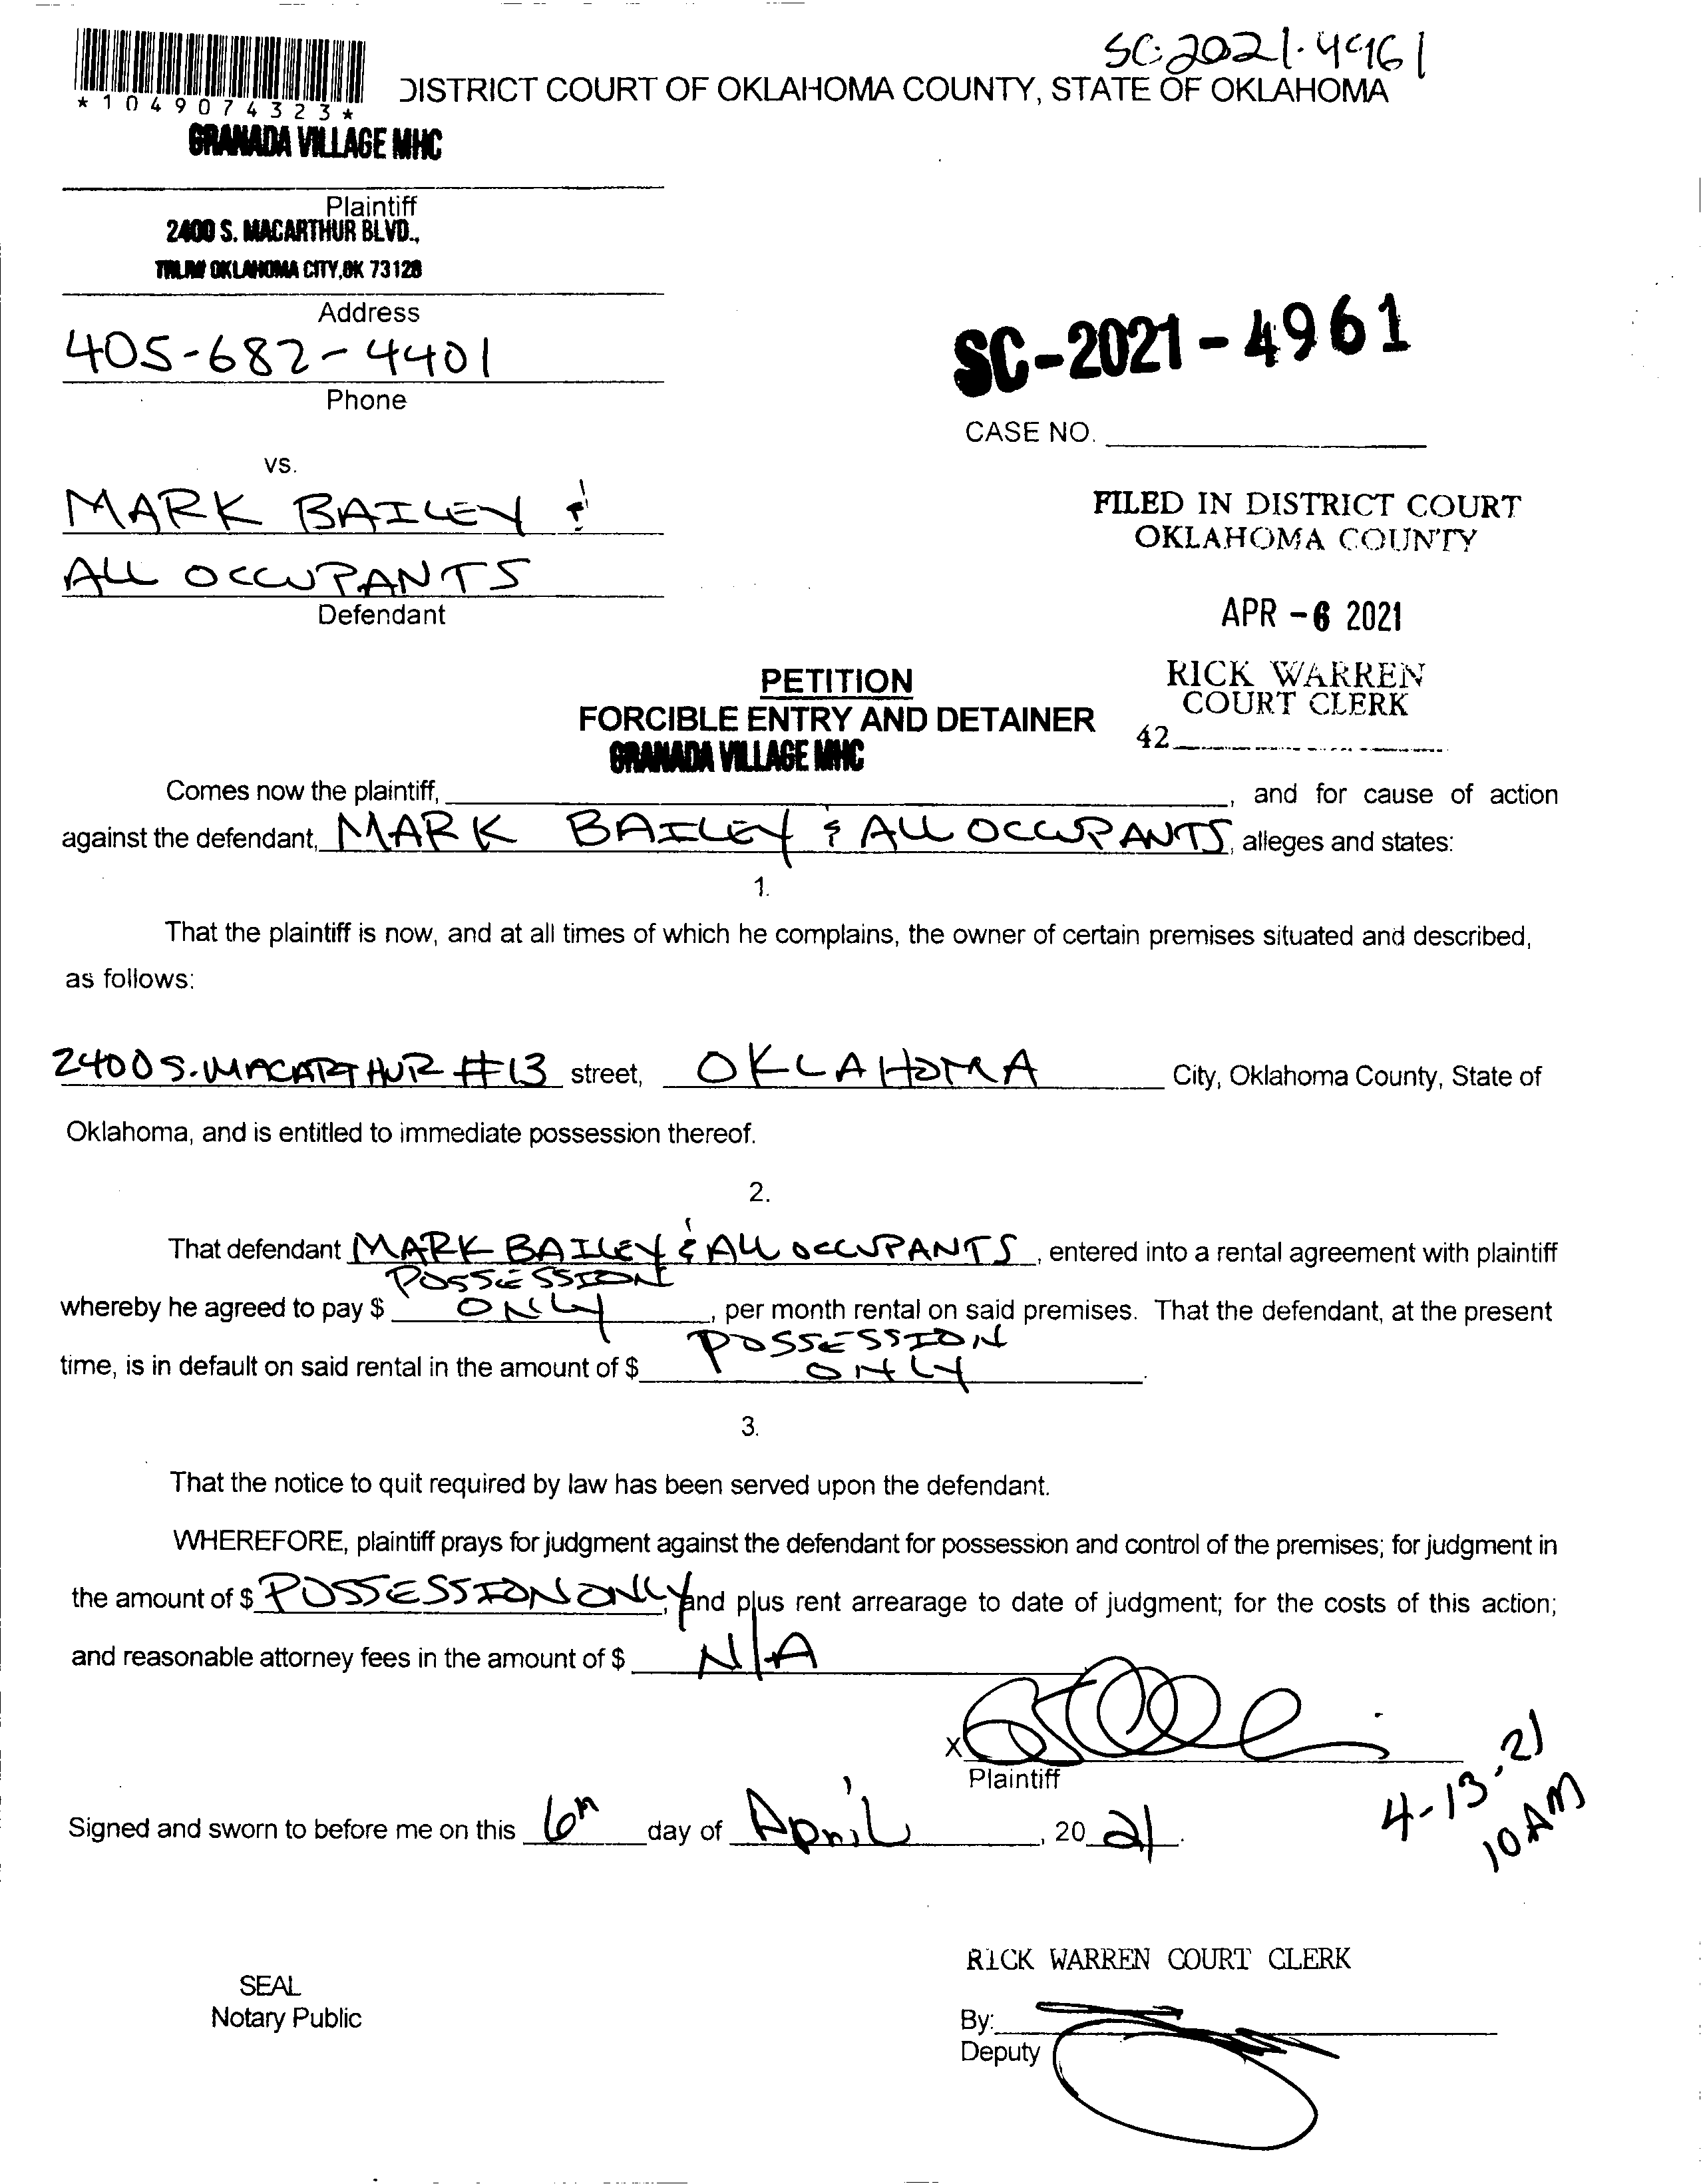 SC-2021-4961
DISTRICT COURT OF OKLAHOMA COUNTY, STATE OF OKLAHOMA
*1049074323*
GRANADA VILLAGE MHC
Plaintiff
2400 S. MACARTHUR BLVD.,
OKLAHOMA CITY, OK 73128
Address
405-682-4401
Phone
SC-2021-4961
CASE NO.
vs.
MARK BAILEY &
ALL OCCUPANTS
Defendant
FILED IN DISTRICT COURT
OKLAHOMA COUNTY
APR -6 2021
RICK WARREN
COURT CLERK
42
PETITION
FORCIBLE ENTRY AND DETAINER
GRANADA VILLAGE MHC
Comes now the plaintiff, , and for cause of action
against the defendant, MARK BAILEY & ALL OCCUPANTS, alleges and states:
1.
That the plaintiff is now, and at all times of which he complains, the owner of certain premises situated and described,
as follows:
2400 S. MACARTHUR #13 street, OKLAHOMA City, Oklahoma County, State of
Oklahoma, and is entitled to immediate possession thereof.
2.
That defendant MARK BAILEY & ALL OCCUPANTS, entered into a rental agreement with plaintiff
POSSESSION
whereby he agreed to pay $ ONLY, per month rental on said premises. That the defendant, at the present
POSSESSION
time, is in default on said rental in the amount of $ ONLY.
3.
That the notice to quit required by law has been served upon the defendant.
WHEREFORE, plaintiff prays for judgment against the defendant for possession and control of the premises; for judgment in
the amount of $ POSSESSION ONLY, and plus rent arrearage to date of judgment; for the costs of this action;
and reasonable attorney fees in the amount of $ N/A
X
Plaintiff
4-13-21
10 AM
Signed and sworn to before me on this 6th day of April, 2021.
RICK WARREN COURT CLERK
SEAL
Notary Public
By:
Deputy